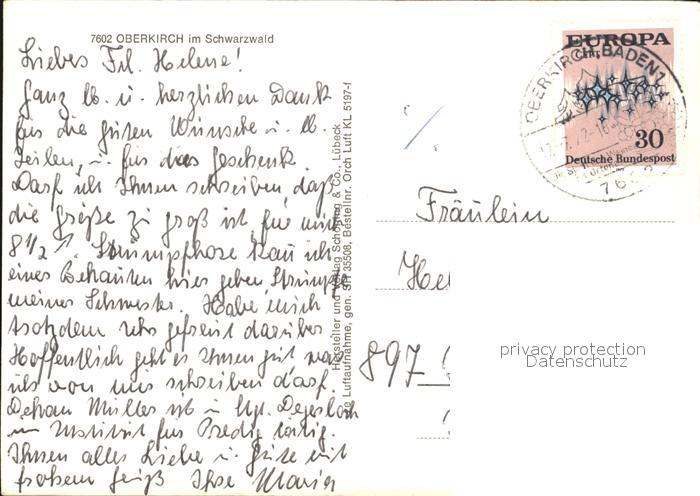 7602 OBERKIRCH im Schwarzwald
Liebes Frl. Helene!
Ganz lb. u. herzlichen Dank
für die guten Wünsche u. lb.
Zeilen, u. für das Geschenk
Darf ich Ihnen schreiben, daß
die Größe zu groß ist für mich
8 1/2 Strumpfhose kann ich
einer Bekannten hier geben, Strümpfe
meiner Schwester. Habe mich
trotzdem sehr gefreut darüber
Hoffentlich geht es Ihnen gut was
ich von mir schreiben darf.
Dekan Müller ist in Stgt. Degerloch
im Institut für Predig tätig.
Ihnen alles Liebe u. Gute mit
frohem Gruß Ihre Maria
Hersteller und Verlag Schöning & Co., Lübeck
Luftaufnahme, gen. SH 35508, Bestellnr. Orch Luft KL 5197-1
EUROPA
CEPT
30
Deutsche Bundespost
OBERKIRCH, BADEN 1
7602
Fräulein
He
897
privacy protection
Datenschutz